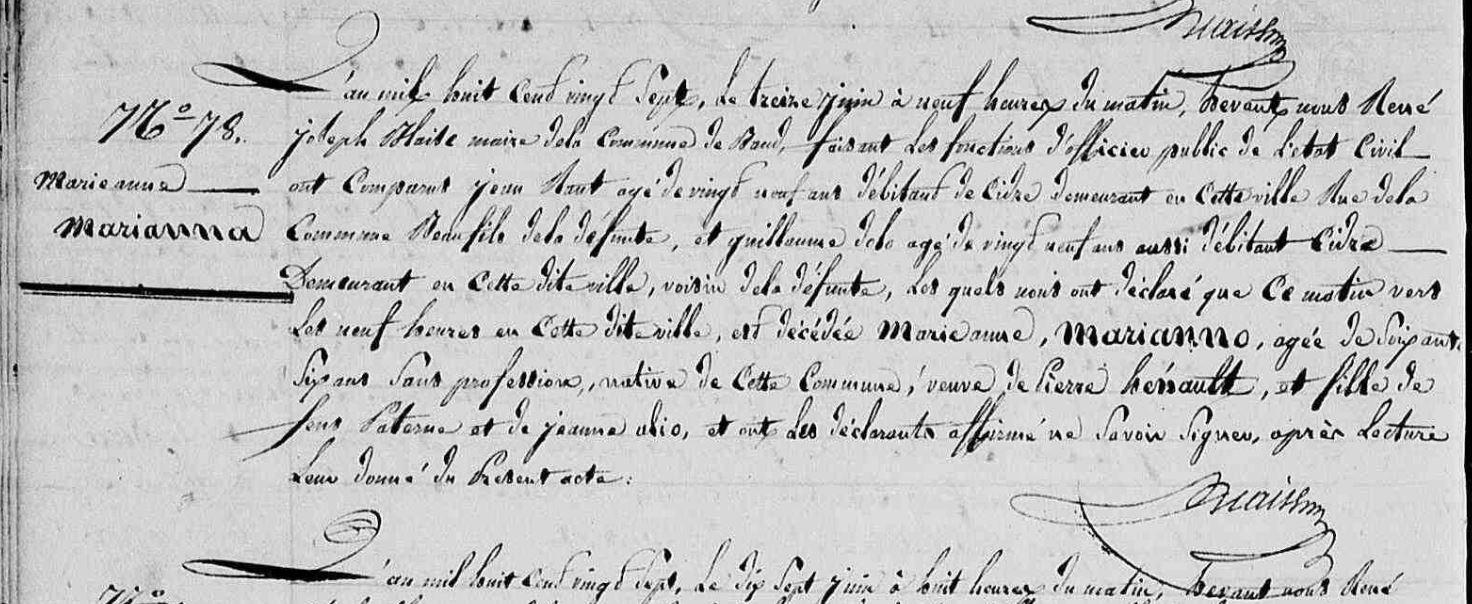 L'an mil huit Cent vingt Sept, Le treize juin à neuf heures Du matin, Devant nous René
N.º 78.
joseph maire dela Commune de Baud, faisant Les fonctions d'officier public de L'état Civil
Marieanne
ont Comparus jean agé de vingt neuf ans débitant de Cidre Demeurant en Cette ville Rue dela
Marianna
Commune Beaufils dela défunte, et guillaume agé de vingt neuf ans aussi débitant Cidre
Demeurant en Cette dite ville, voisin dela défunte, Les quels nous ont déclaré que Ce matin vers
Les neuf heures en Cette dite ville, est décédée Marieanne, Marianno, agée de Soixante
Six ans Sans profession, native de Cette Commune, veuve de Pierre henault, et fille de
feus Paterne et de jeanne alio, et ont Les déclarants affirmé ne Savoir Signer, après Lecture
Leur donné du Present acte.
L'an mil huit Cent vingt Sept, Le dix Sept juin à huit heures du matin, Devant nous René